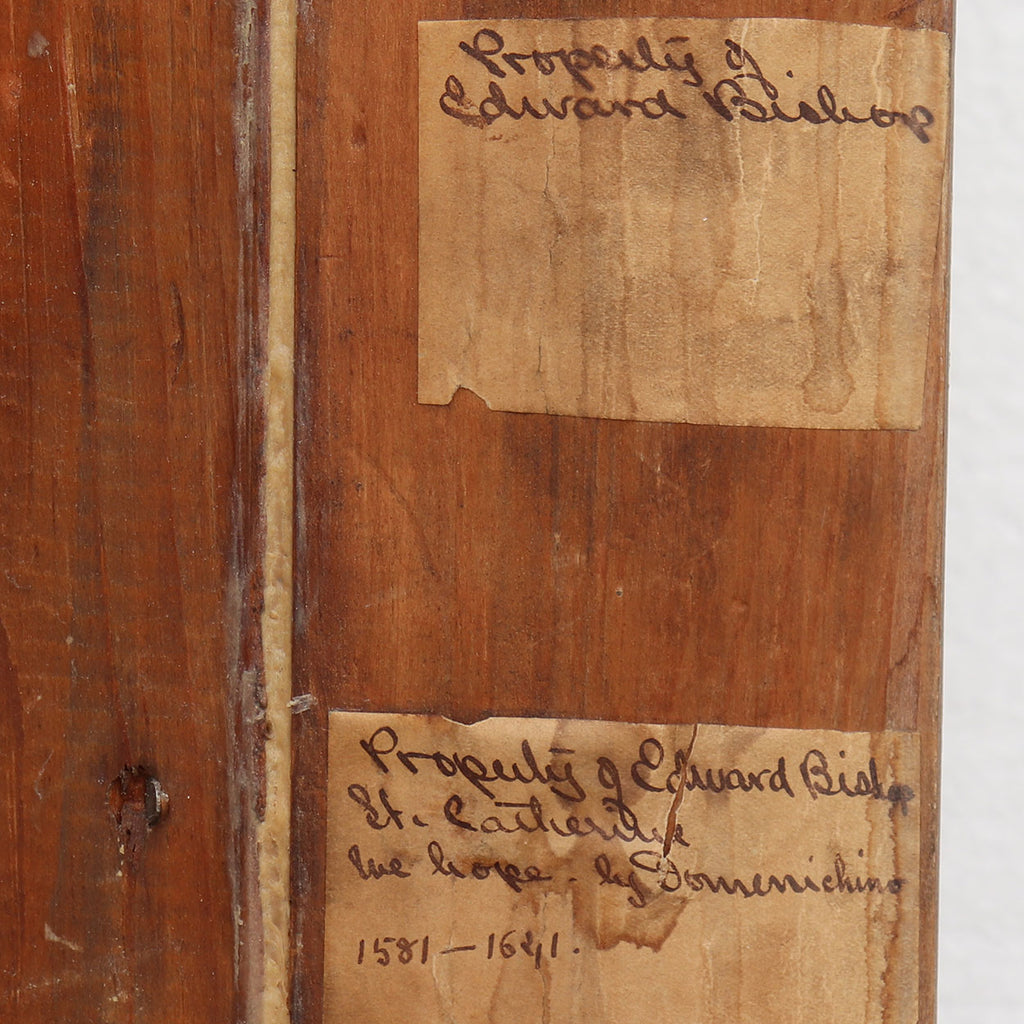 Property of
Edward Bishop
Property of Edward Bishop
St. Catherine
we hope - by Domenichino
1581 – 1641.